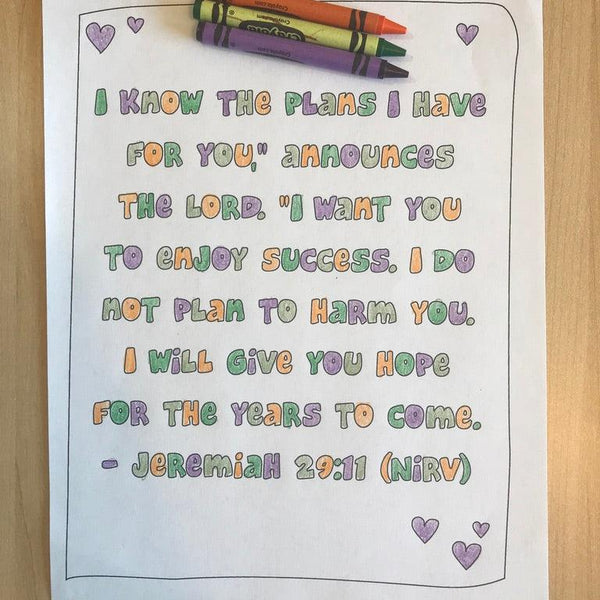 Crayola
Crayola.com
I KNOW THE PLANS I HAVE
FOR YOU," ANNOUNCES
THE LORD. "I WANT YOU
TO ENJOY SUCCESS. I DO
NOT PLAN TO HARM YOU.
I WILL GIVE YOU HOPE
FOR THE YEARS TO COME.
- JEREMIAH 29:11 (NIRV)